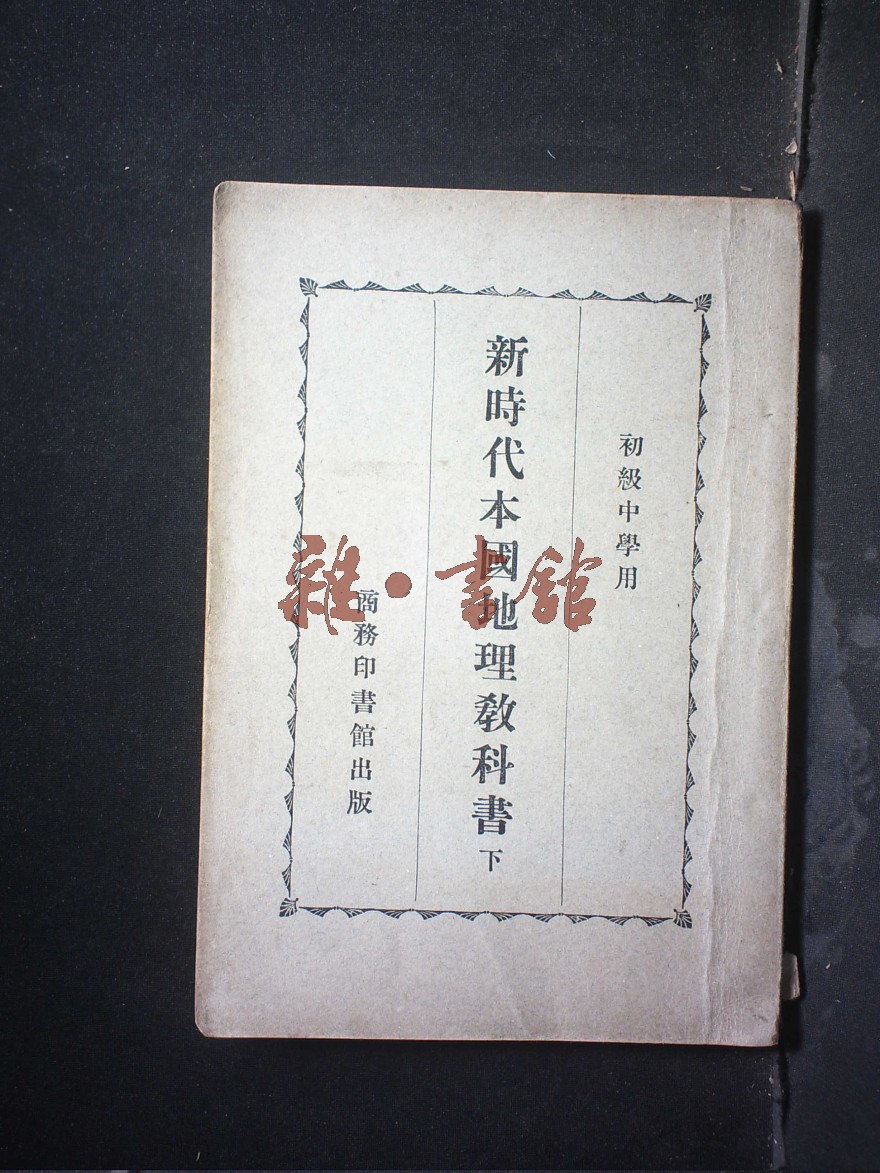 初級中學用
新時代本國地理教科書 下
商務印書館出版
雜·書館